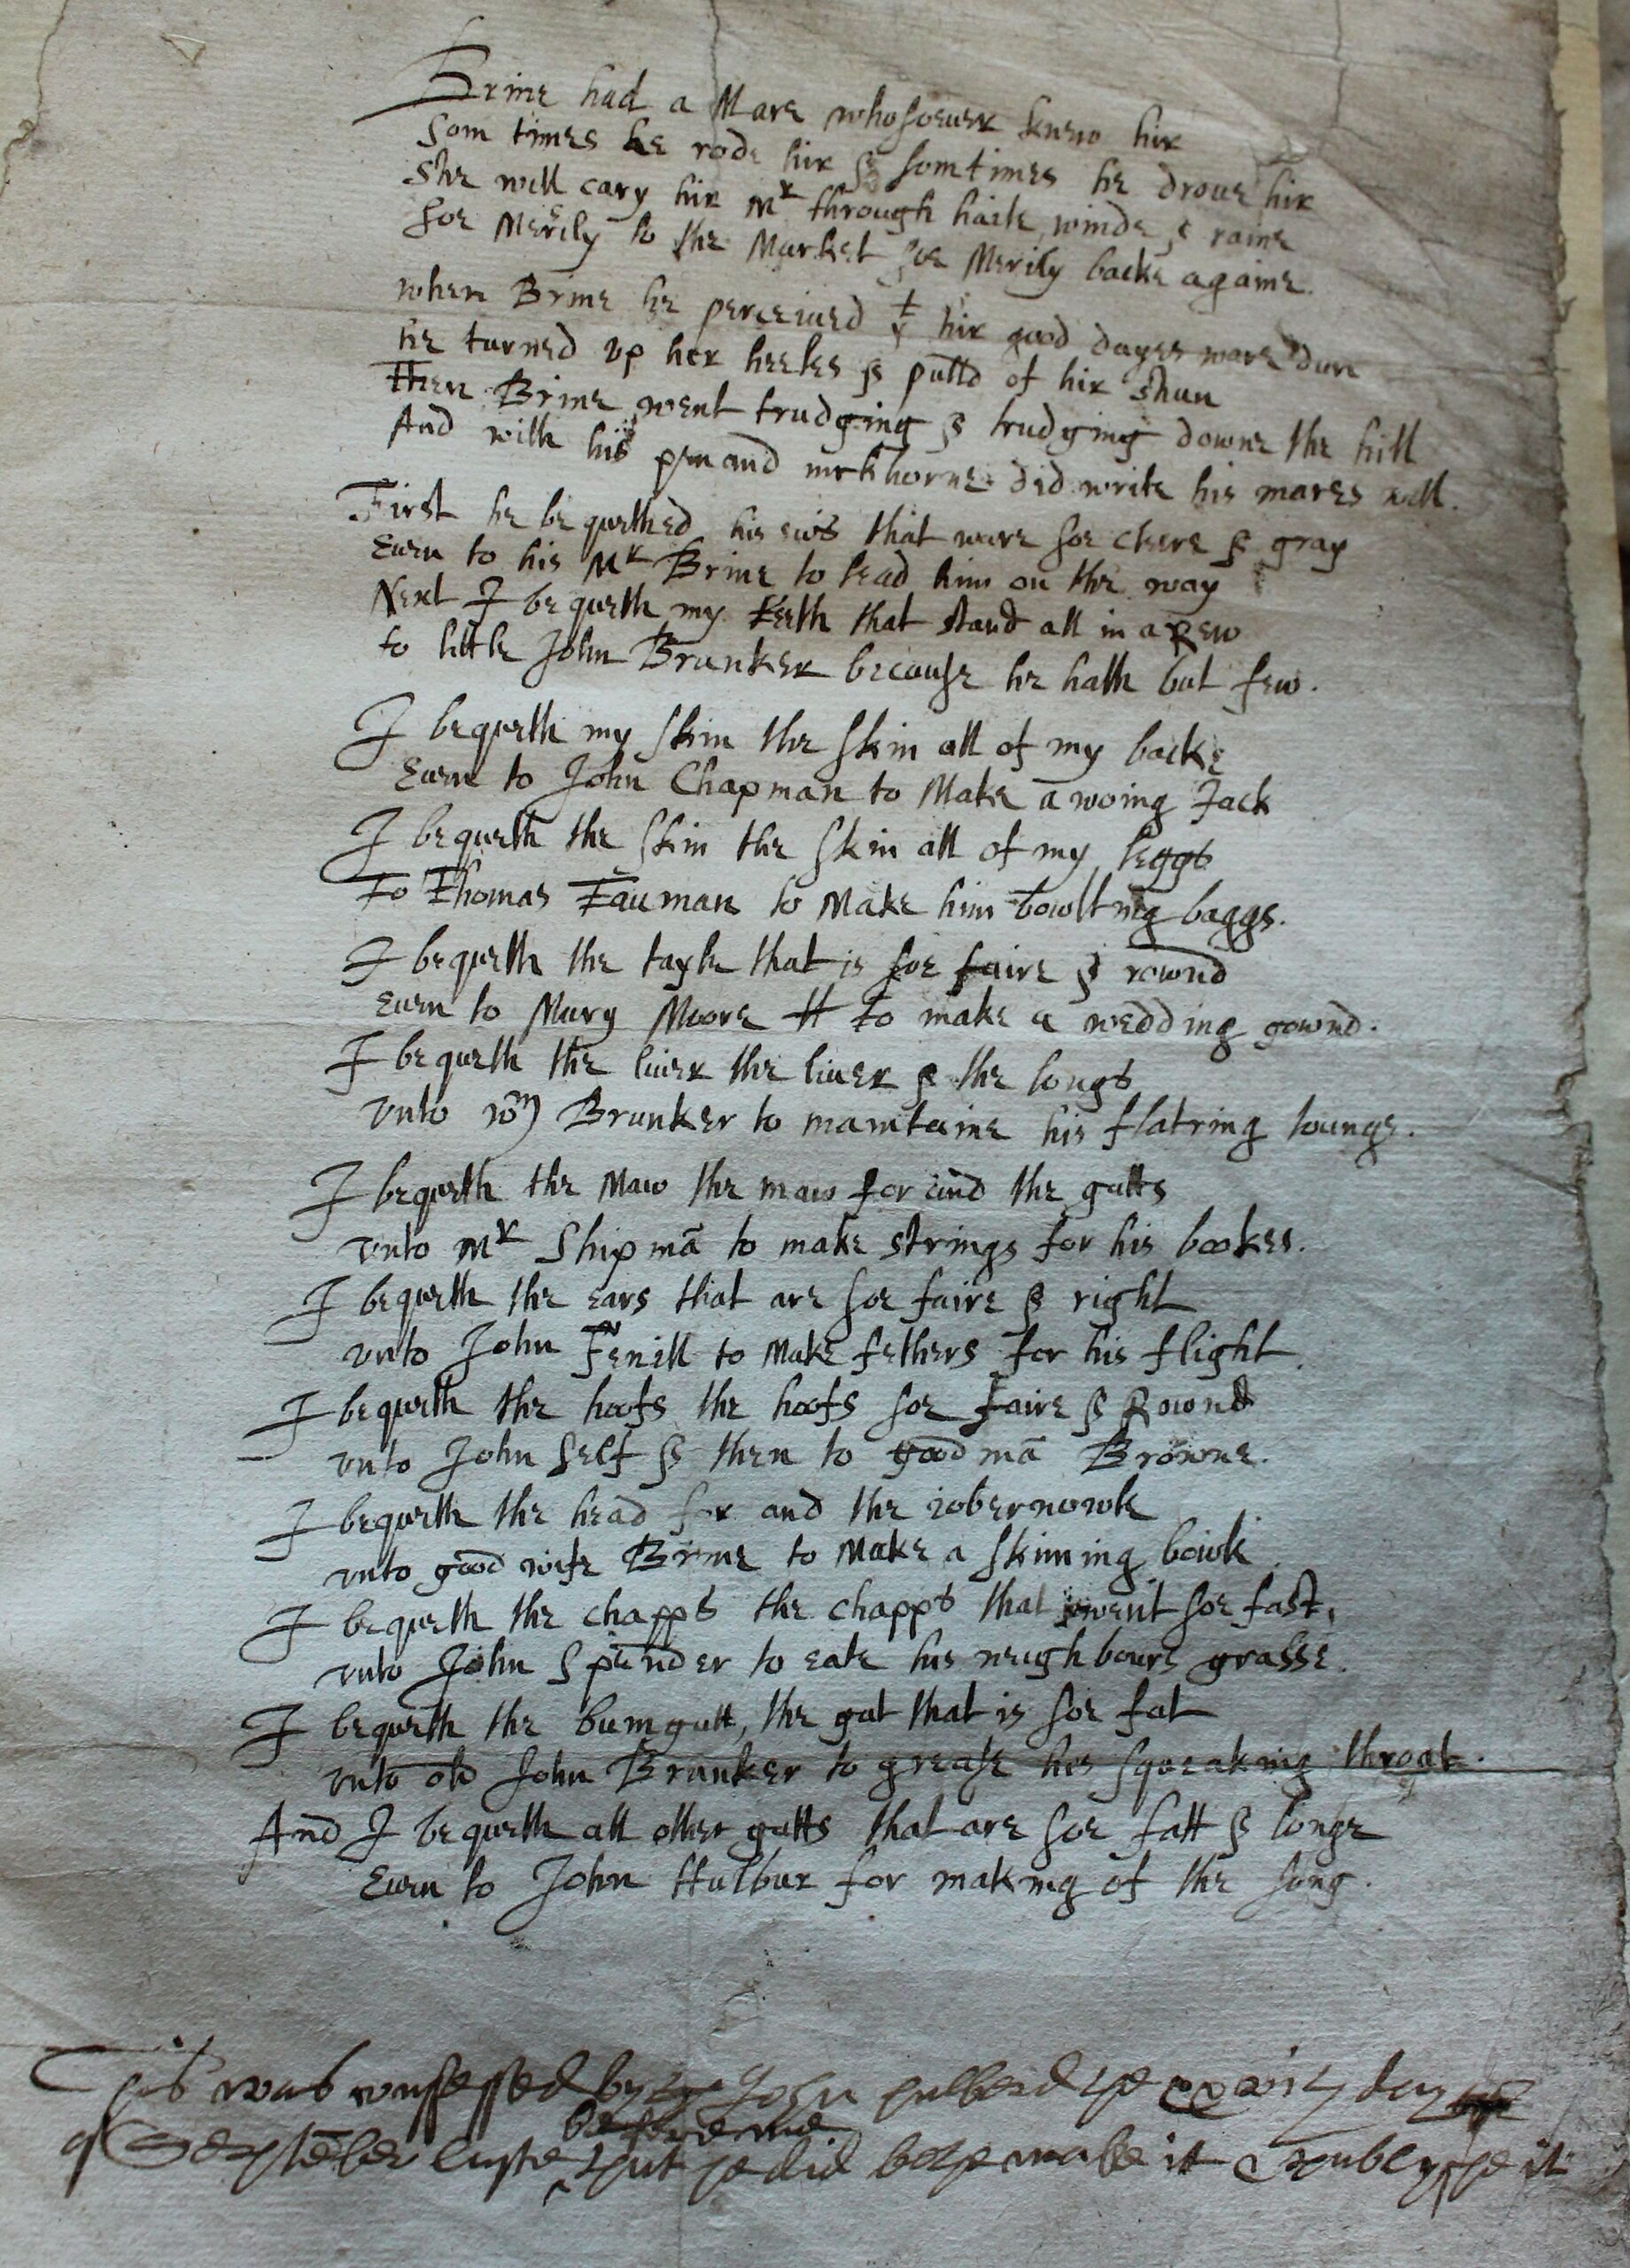 Brine had a Mare whosoeuer knew hir
Som times he rode hir & somtimes he droue hir
She will cary hir Mr through haile, winde, & raine
Soe Merily to the Market soe Merily backe againe.
when Brine he perceiued yt hir good dayes ware dun
he turned vp her heeles & pulld of hir shun
Then Brine went trudging & trudging downe the hill
And with his pen and inckhorne did write his mares will.
First he bequethed his eies that were soe cleere & gray
Euen to his Mr Brine to lead him on the way
Next I bequeth my teeth that stand all in a Rew
to little John Brunker because he hath but few.
I bequeth my skin the skin all of my backe
Euen to John Chapman to Make a woing Jack
I bequeth the skin the skin all of my leggs
To Thomas Tauman to Make him boulting baggs.
I bequeth the tayle that is soe faire & rownd
euen to Mary Moore tt to make a wedding gownd.
I bequeth the liuer the liuer & the longs
vnto Wm Brunker to maintaine his flatring tounge.
I bequeth the Maw the maw for and the gutts
vnto Mr Shipmā to make strings for his bookes.
I bequeth the ears that are soe faire & right
vnto John Fenill to Make fethers for his flight.
I bequeth the hoofs the hoofs soe faire & Rownd
vnto John Self & then to goodmā Browne.
I bequeth the head for and the iobernowle
vnto good wife Brine to Make a skiming bowle
I bequeth the chapps the chapps that went soe fast,
vnto John Spender to eate his neighbours grasse.
I bequeth the bumgutt, the gut that is soe fat
vnto old John Brunker to grease his squeaking throat.
And I bequeth all other gutts that are soe fatt & longe
Euen to John Hulbur for making of the song.
This was confessed by John hulberd the day
before me
of Septēber laste that he did bothe make it & publyshe it